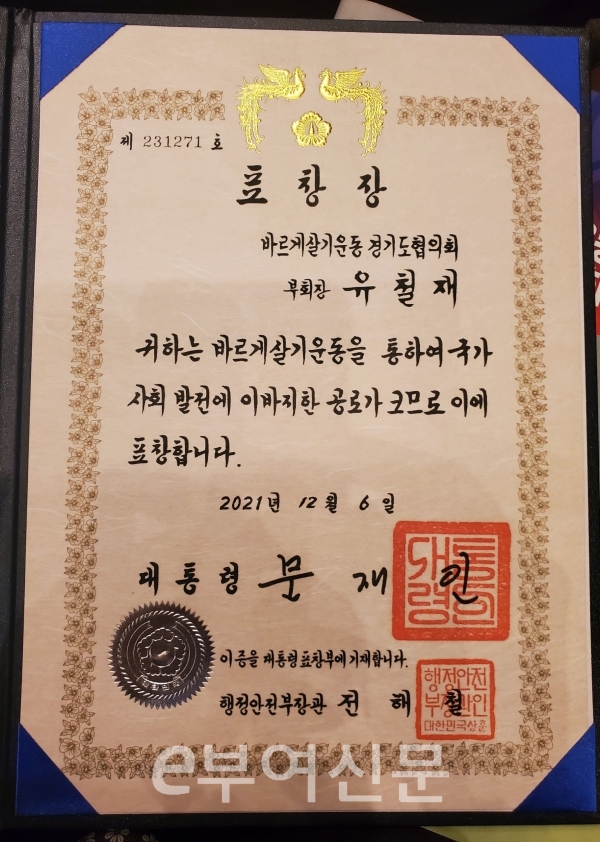 제 231271 호
표창장
바르게살기운동 경기도협의회
부회장 유철재
귀하는 바르게살기운동을 통하여 국가
사회 발전에 이바지한 공로가 크므로 이에
표창합니다.
2021년 12월 6일
대통령 문재인
대통령
이 증을 대통령표창부에 기재합니다.
행정안전부장관 전해철
행정안전
부장관인
대한민국상훈
e부여신문